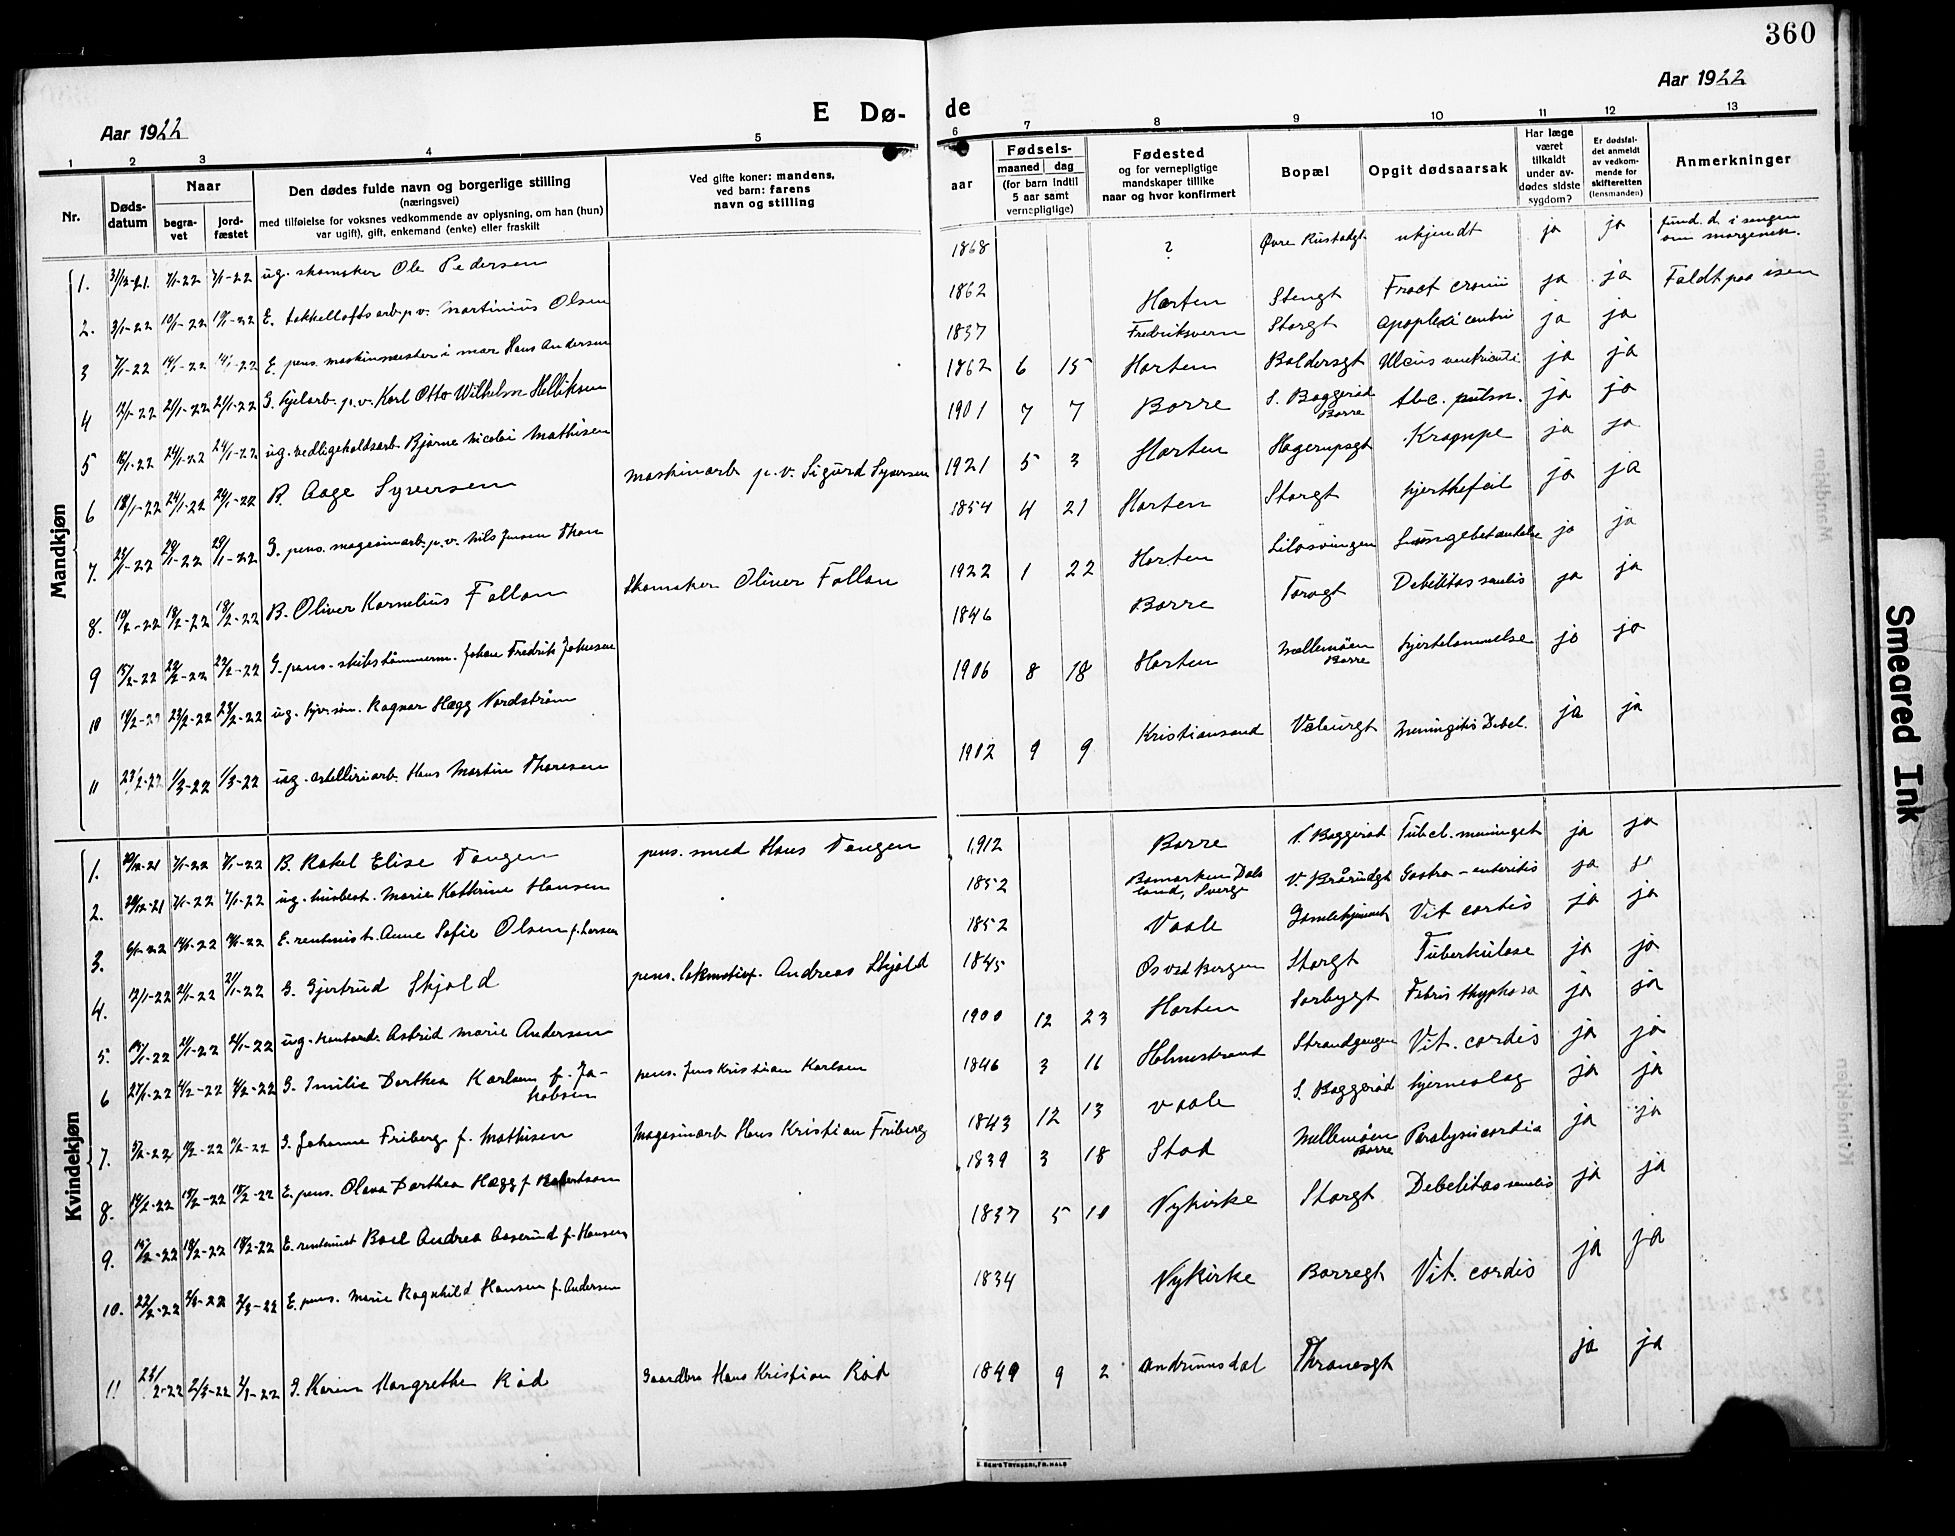 360
Aar 1922
E Dø-
de
Aar 1922
1 2 3 4 5 6 7 8 9 10 11 12 13
Nr.
Døds-
datum
Naar
begra-
vet
jord-
fæstet
Den dødes fulde navn og borgerlige stilling
(næringsvei)
med tilføielse for voksnes vedkommende av oplysning, om han (hun)
var ugift), gift, enkemand (enke) eller fraskilt
Ved gifte koner: mandens,
ved barn: farens
navn og stilling
aar
Fødsels-
maaned dag
(for barn indtil
5 aar samt
vernepligtige)
Fødested
og for vernepligtige
mandskaper tillike
naar og hvor konfirmert
Bopæl
Opgit dødsaarsak
Har læge
været
tilkaldt
under av-
dødes sidste
sygdom?
Er dødsfal-
det anmeldt
av vedkom-
mende for
skifteretten
(lensmanden)
Anmerkninger
Mandkjøn
1. 31/12-21 7/1-22 7/1-22 ug. skomaker Ole Pedersen 1868 ? Øvre Rustadgt ukjendt ja ja fund. d. i sengen
om morgenen.
2. 3/1-22 10/1-22 10/1-22 E. takkelloftsarb. p.v. Martinius Olsen 1862 Horten Stengt Fract cranii ja ja Faldt paa isen
3 7/1-22 14/1-22 14/1-22 E. pens. maskinmester i mar Hans Andersen 1837 Fredriksvern Storgt apoplexi ja ja
4 12/1-22 21/1-22 21/1-22 G. kjelarb. p.v. Karl Otto Wilhelm Helliksen 1862 6 15 Horten Baldersgt Ulcus ventriculi ja ja
5 16/1-22 24/1-22 24/1-22 ug. vedligeholdsarb. Bjarne Nicolai Mathisen 1901 7 7 Borre S. Baggerød
Borre tbc. pulm. ja ja
6 18/1-22 24/1-22 24/1-22 B. Aage Syversen maskinarb p.v. Sigurd Syversen 1921 5 3 Horten Hagerupsgt Krampe ja ja
7. 23/1-22 29/1-22 29/1-22 G. pens. magasinarb. p.v. Nils Jensen Thon 1854 4 21 Horten Storgt hjertefeil ja ja
8. 10/2-22 18/2-22 18/2-22 B. Oliver Kornelius Follan Skomaker Oliver Follan 1922 1 22 Horten Liløsvingen Lungebetændelse ja ja
9 15/2-22 22/2-22 22/2-22 G. pens. skibstømmerm. Johan Fredrik Johnsen 1846 Borre Torvgt Debilitas senilis ja ja
10 19/2-22 23/2-22 23/2-22 ug. Ragnar Hægg Nordstrøm 1906 8 18 Horten Mellemøen
Borre hjertelammelse ja ja
11 23/2-22 1/3-22 1/3-22 ug. artilleriarb. Hans Martin Thoresen 1902 9 9 Kristiansand Vealøsgt Meningitis ja ja
Kvindekjøn
1. 29/12-21 7/1-22 7/1-22 B. Rakel Elise Tangen pens. smed Hans Tangen 1912 Borre N. Baggerød Tubcl. meninget ja ja
2. 29/12-21 7/1-22 7/1-22 ug. husbest. Marie Kathrine Hansen 1852 Bomarken Dals
land, Sverge V. Brårudgt Gastro-enteritis ja ja
3. 6/1-22 14/1-22 14/1-22 E. rentenist. Anne Sofie Olsen f. Larsen 1852 Vaale Gamlehjemmet Vit cordis ja ja
4. 12/1-22 21/1-22 21/1-22 G. Gjertrud Skjold pens. lokomotivf. Andreas Skjold 1845 Os ved Bergen Storgt Tuberkulose ja ja
5. 15/1-22 21/1-22 21/1-22 ug. kontord. Astrid Marie Andersen 1900 12 23 Horten Sorbygt Febris thyphosa ja ja
6 27/1-22 4/2-22 4/2-22 G. Emilie Dorthea Karlsen f. Ja-
kobsen pens. Jens Kristian Karlsen 1846 3 16 Holmestrand Strandgangen Vit. cordis ja ja
7. 3/2-22 11/2-22 11/2-22 G. Johanne Friberg f. Mathisen Magasinarb Hans Kristian Friberg 1843 12 13 Vaale S. Baggerød hjerneslag ja ja
8. 14/2-22 18/2-22 18/2-22 E. pens. Olava Dorthea Hægg f. Robertson 1839 3 18 Stod Mellemøen
Borre Paralysis cordis ja ja
9. 15/2-22 18/2-22 18/2-22 E. rentenist Boel Andrea Aaserud f. Hansen 1837 5 10 Nykirke Storgt Debelitas senilis ja ja
10. 22/2-22 2/3-22 2/3-22 E. pens. Marie Ragnhild Hansen f. Andersen 1834 Nykirke Borregt Vit. cordis ja ja
11 23/2-22 2/3-22 2/3-22 G. Karen Margrethe Rød Gaardbr. Hans Kristian Rød 1849 9 2 Andrumsdal Thranesgt ja ja
E. SEM'S TRYKKERI, FR.HALD
Smeared Ink